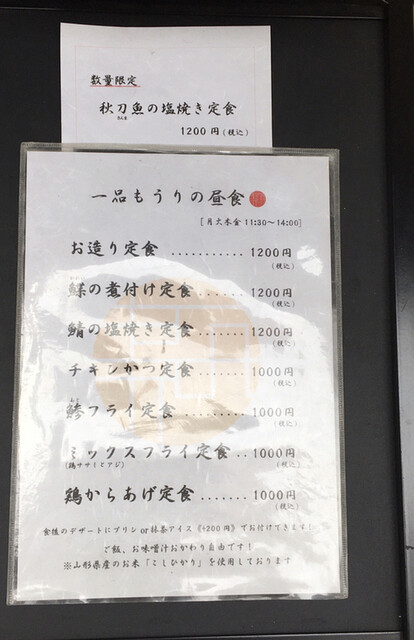 数量限定
秋刀魚の塩焼き定食
さんま
1200円(税込)
一品もうりの昼食
[月火木金11:30〜14:00]
お造り定食 ........... 1200円
(税込)
鰈の煮付け定食 ....... 1200円
(税込)
鯖の塩焼き定食 ....... 1200円
(税込)
チキンかつ定食 ....... 1000円
(税込)
鯵フライ定食 ......... 1000円
(税込)
ミックスフライ定食 .. 1000円
(鶏ササミとアジ)
(税込)
鶏からあげ定食 ....... 1000円
(税込)
食後のデザートにプリンor抹茶アイス《+200円》でお付けできます!
ご飯、お味噌汁おかわり自由です!
※山形県産のお米「こしひかり」を使用しております